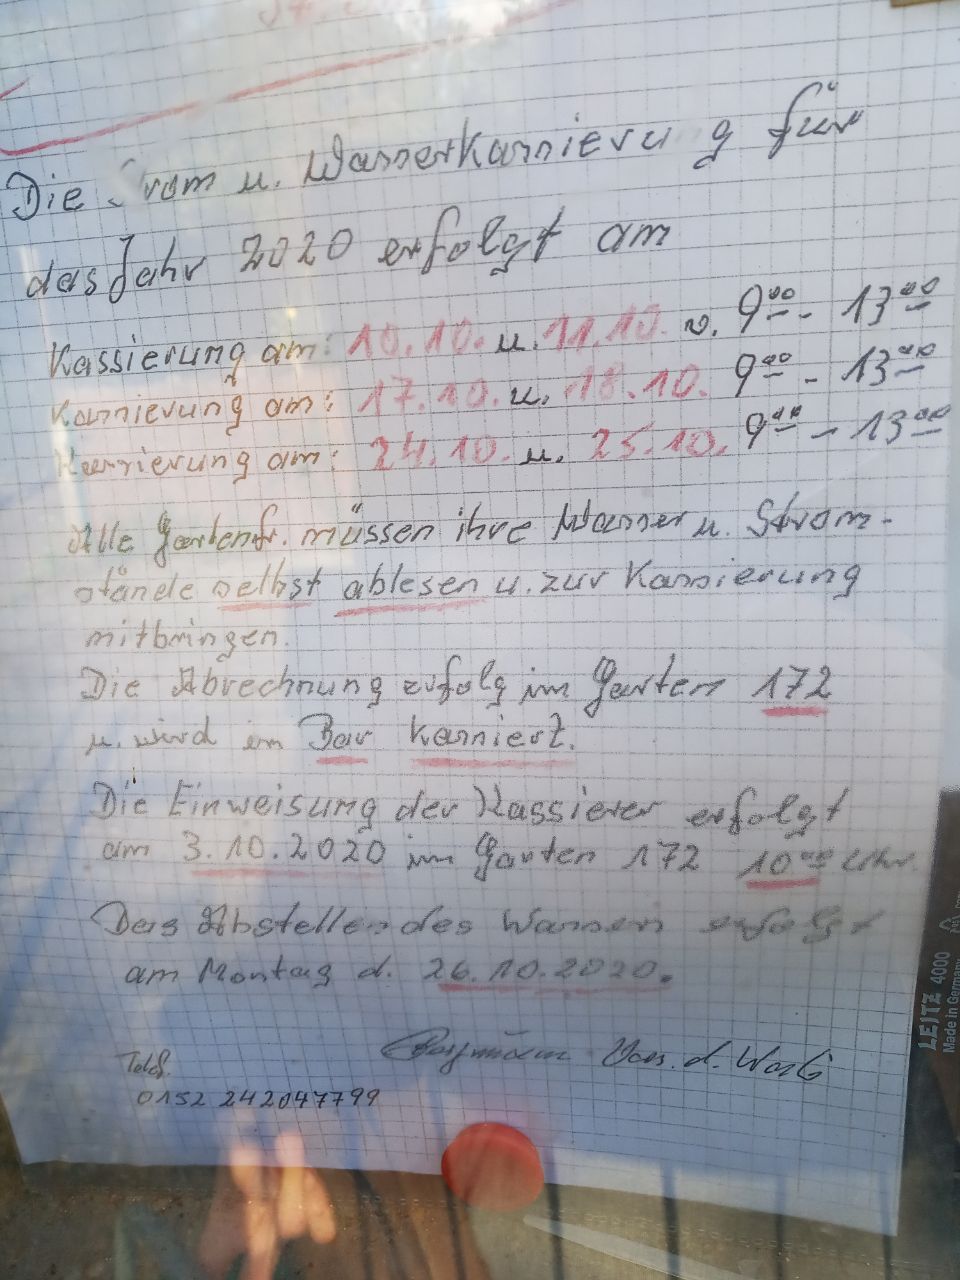 Die Strom u. Wasserkassierung für
das Jahr 2020 erfolgt am
Kassierung am: 10.10. u. 11.10. v. 9⁰⁰ - 13⁰⁰
Kassierung am: 17.10. u. 18.10. 9⁰⁰ - 13⁰⁰
Kassierung am: 24.10. u. 25.10. 9⁰⁰ - 13⁰⁰
Alle Gartenfr. müssen ihre Wasser u. Strom-
stände selbst ablesen u. zur Kassierung
mitbringen.
Die Abrechnung erfolg im Garten 172
u. wird in Bar kassiert.
Die Einweisung der Kassierer erfolgt
am 3.10.2020 im Garten 172 10⁰⁰ Uhr.
Das Abstellen des Wassers erfolgt
am Montag d. 26.10.2020.
Vors. d.
Telef.
0152 242047799
LEITZ 4000
Made in Germany